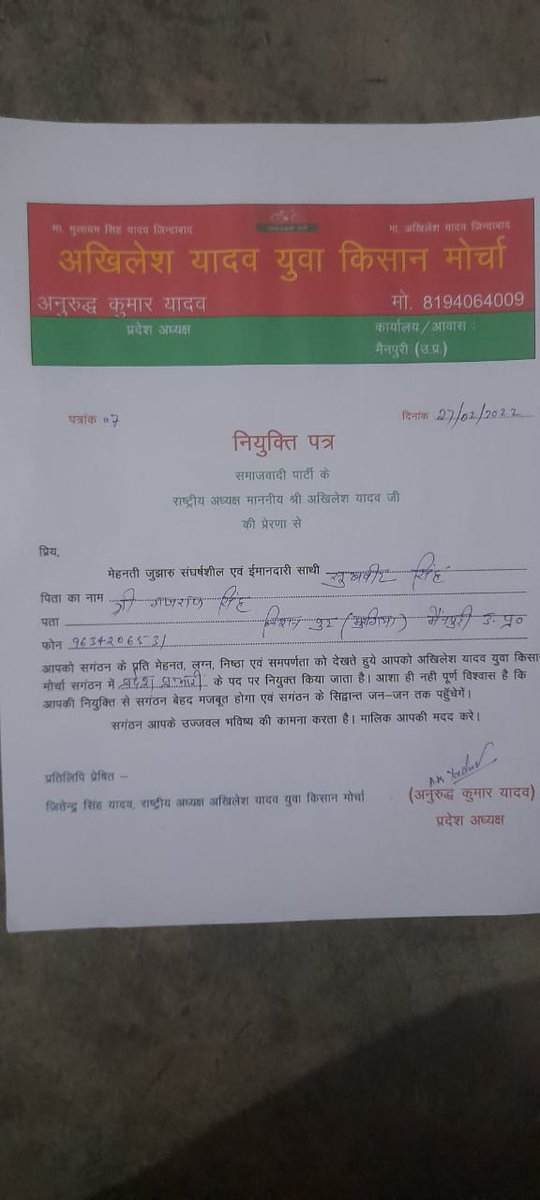 मा. मुलायम सिंह यादव जिन्दाबाद मा. अखिलेश यादव जिन्दाबाद
अखिलेश यादव युवा किसान मोर्चा
अनुरुद्ध कुमार यादव मो. 8194064009
प्रदेश अध्यक्ष कार्यालय/आवास :
मैनपुरी (उ.प्र.)
पत्रांक 07 दिनांक 27/02/2022
नियुक्ति पत्र
समाजवादी पार्टी के
राष्ट्रीय अध्यक्ष माननीय श्री अखिलेश यादव जी
की प्रेरणा से
प्रिय,
मेहनती जुझारु संघर्षशील एवं ईमानदारी साथी सुखवीर सिंह
पिता का नाम श्री गजराज सिंह
पता किशन पुर मैंनपुरी उ. प्र०
फोन 9634206531
आपको सगंठन के प्रति मेहनत, लग्न, निष्ठा एवं समपर्णता को देखते हुये आपको अखिलेश यादव युवा किसान
मोर्चा सगंठन में प्रदेश प्रभारी के पद पर नियुक्त किया जाता है। आशा ही नही पूर्ण विश्वास है कि
आपकी नियुक्ति से सगंठन बेहद मजबूत होगा एवं सगंठन के सिद्वान्त जन-जन तक पहुँचेगें।
सगंठन आपके उज्जवल भविष्य की कामना करता है। मालिक आपकी मदद करे।
प्रतिलिपि प्रेषित –
जितेन्द्र सिंह यादव, राष्ट्रीय अध्यक्ष अखिलेश यादव युवा किसान मोर्चा
AK Yadav
(अनुरुद्ध कुमार यादव)
प्रदेश अध्यक्ष